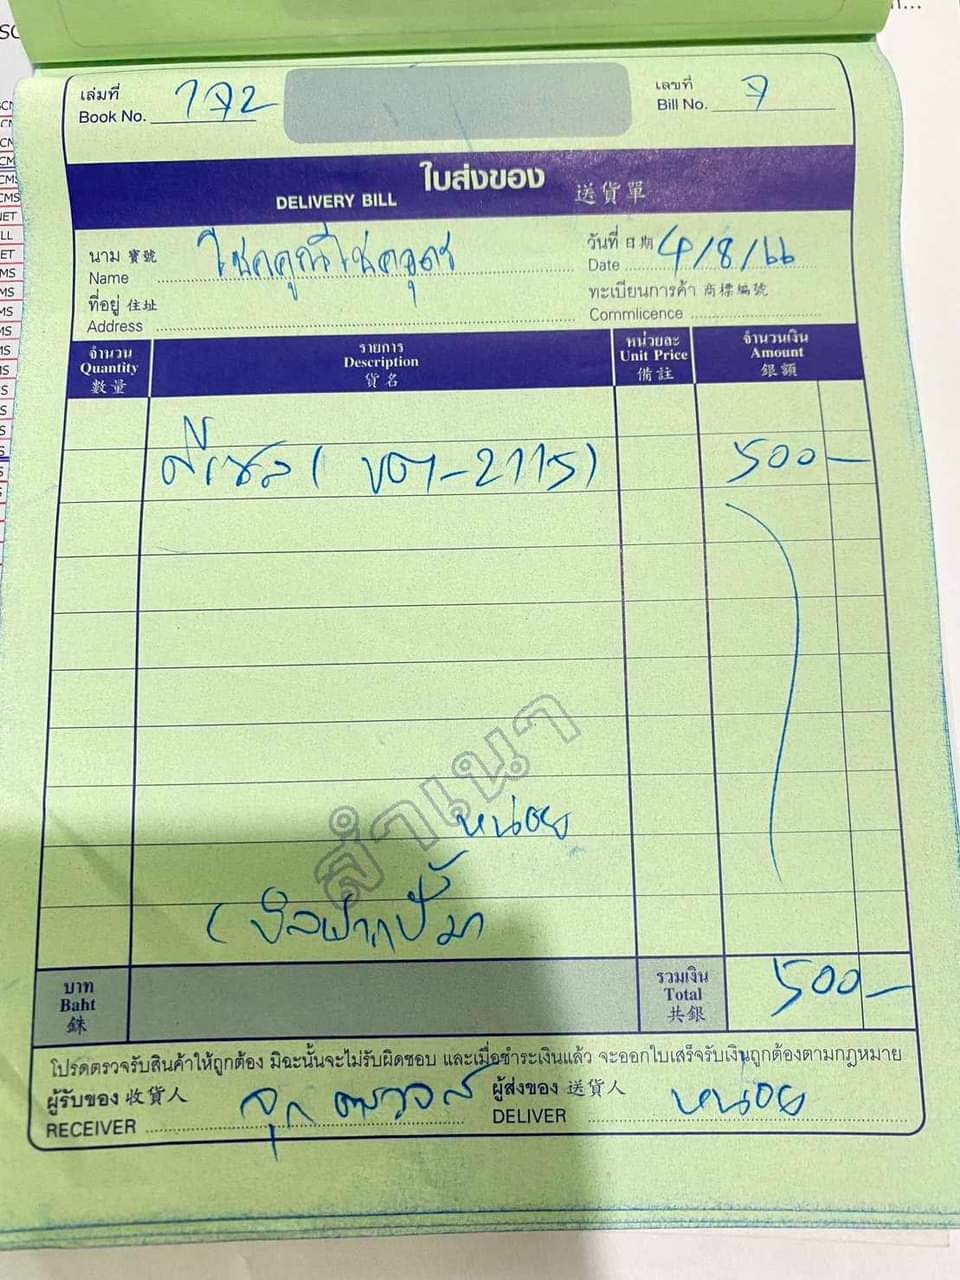 เล่มที่
Book No. 172
เลขที่
Bill No. 7
ใบส่งของ
DELIVERY BILL 送貨單
นาม 寶號
Name โชคคูณโชคอุดร
วันที่ 日期
Date 4/8/66
ที่อยู่ 住址
Address
ทะเบียนการค้า 商標編號
Commlicence
จำนวน
Quantity
數量
รายการ
Description
貨名
หน่วยละ
Unit Price
備註
จำนวนเงิน
Amount
銀額
ดีเซล ( -2115) 500-
สำเนา
หน่อย
(บิลฝากปั๊มมา
บาท
Baht
銖
รวมเงิน
Total
共銀
500-
โปรดตรวจรับสินค้าให้ถูกต้อง มิฉะนั้นจะไม่รับผิดชอบ และเมื่อชำระเงินแล้ว จะออกใบเสร็จรับเงินถูกต้องตามกฎหมาย
ผู้รับของ 收貨人
RECEIVER
ผู้ส่งของ 送貨人
DELIVER หน่อย